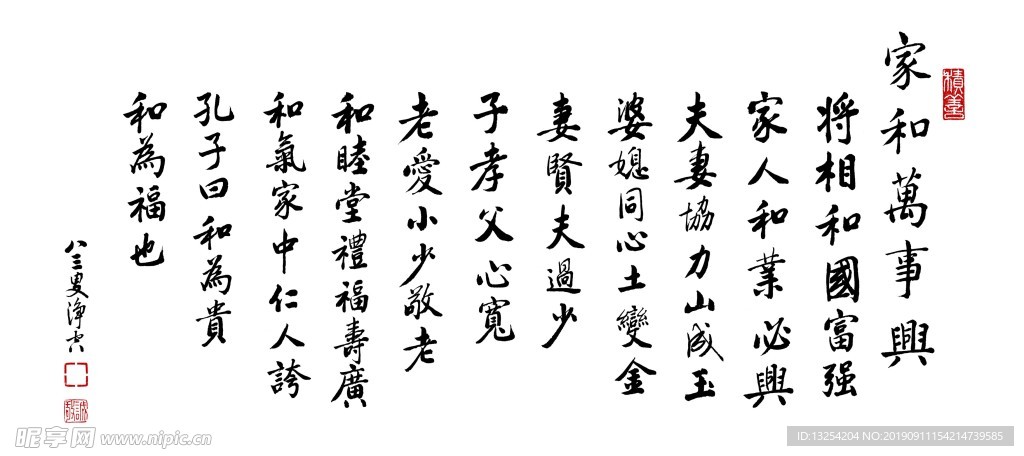 家和萬事興
積善
将相和國富强
家人和業必興
夫妻協力山成玉
婆媳同心土變金
妻賢夫過少
子孝父心寬
老愛小少敬老
和睦堂禮福壽廣
和氣家中仁人誇
孔子曰和為貴
和為福也
八三叟淨
昵享网 www.nipic.cn
ID:13254204 NO:20190911154214739585